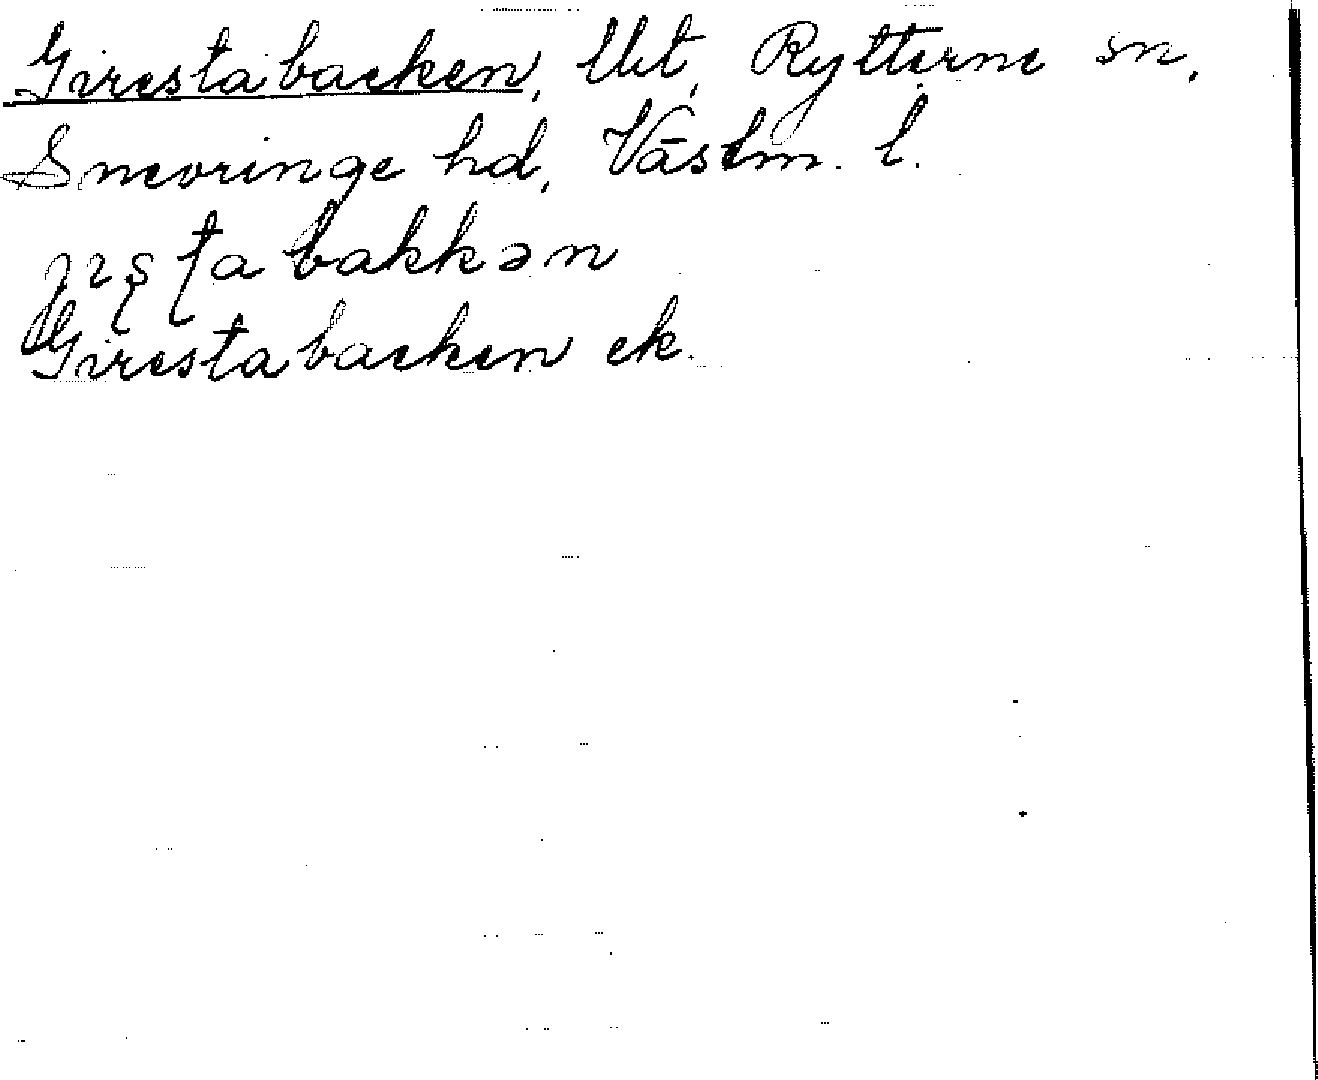 Girestabacken, Ubt, Rytterne sn,
Snevringe hd, Västm. l.
jıʂʈa bakkən
Girestabacken ek.